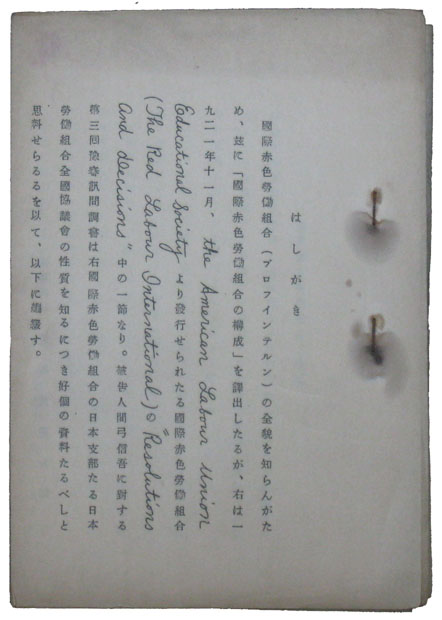 はしがき
國際赤色勞働組合(プロフインテルン)の全貌を知らんがた
め、茲に「國際赤色勞働組合の構成」を譯出したるが、右は一
九二一年十一月、the American Labour Union
Educational Society より發行せられたる國際赤色勞働組合
(The Red Labour International)の "Resolutions
and decisions" 中の一節なり。被告人間弓信吾に對する
第三回豫審訊問調書は右國際赤色勞働組合の日本支部たる日本
勞働組合全國協議會の性質を知るにつき好個の資料たるべしと
思料せらるるを以て、以下に す。